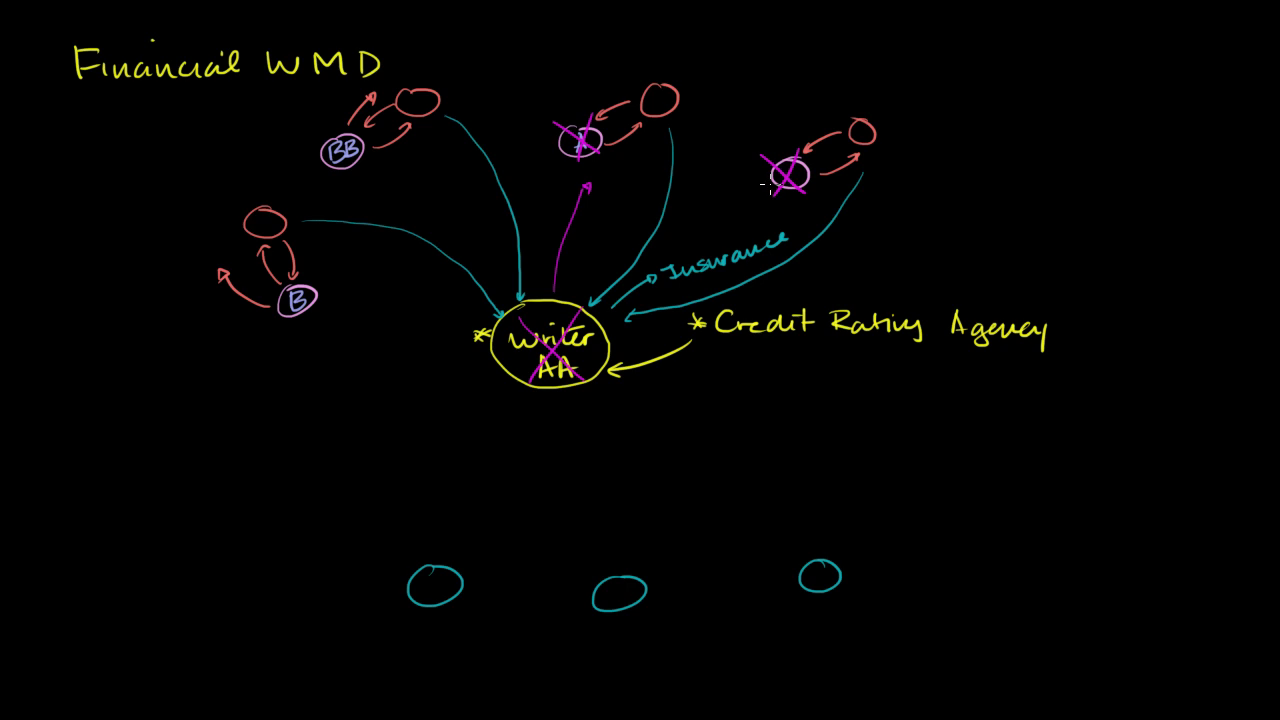 Financial WMD
BB
B
Insurance
* Writer
AA
* Credit Rating Agency